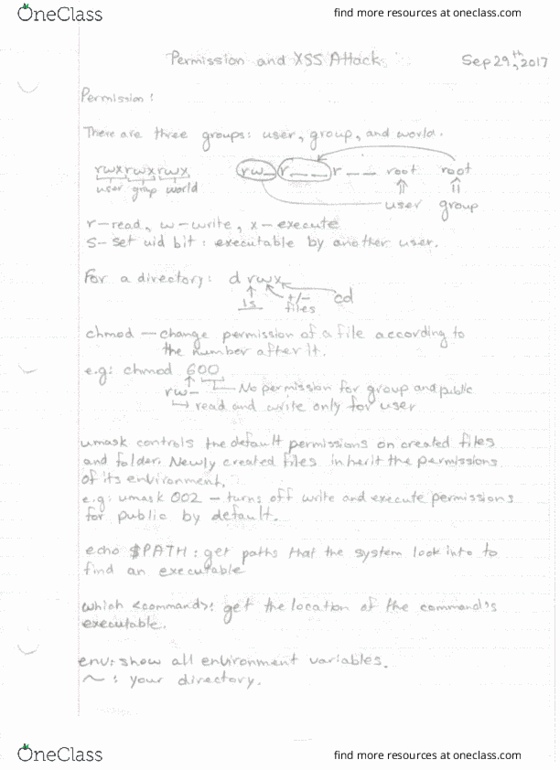 OneClass
find more resources at oneclass.com
Permission and XSS Attack
Sep 29th, 2017
Permission:
There are three groups: user, group, and world.
rwxrwxrwx rw_ r__ r__ root root
user group world
user group
r-read, w-write, x-execute
S- set uid bit: executable by another user.
For a directory: d rwx
ls +/- files cd
chmod - change permission of a file according to
the number after it.
e.g: chmod 600
rw- No permission for group and public
read and write only for user
umask controls the default permissions on created files
and folder. Newly created files inherit the permissions
of its environment.
e.g: umask 002 - turns off write and execute permissions
for public by default.
echo $PATH: get paths that the system look into to
find an executable
which <command>: get the location of the command's
executable.
env: show all environment variables.
~: your directory.
OneClass
find more resources at oneclass.com